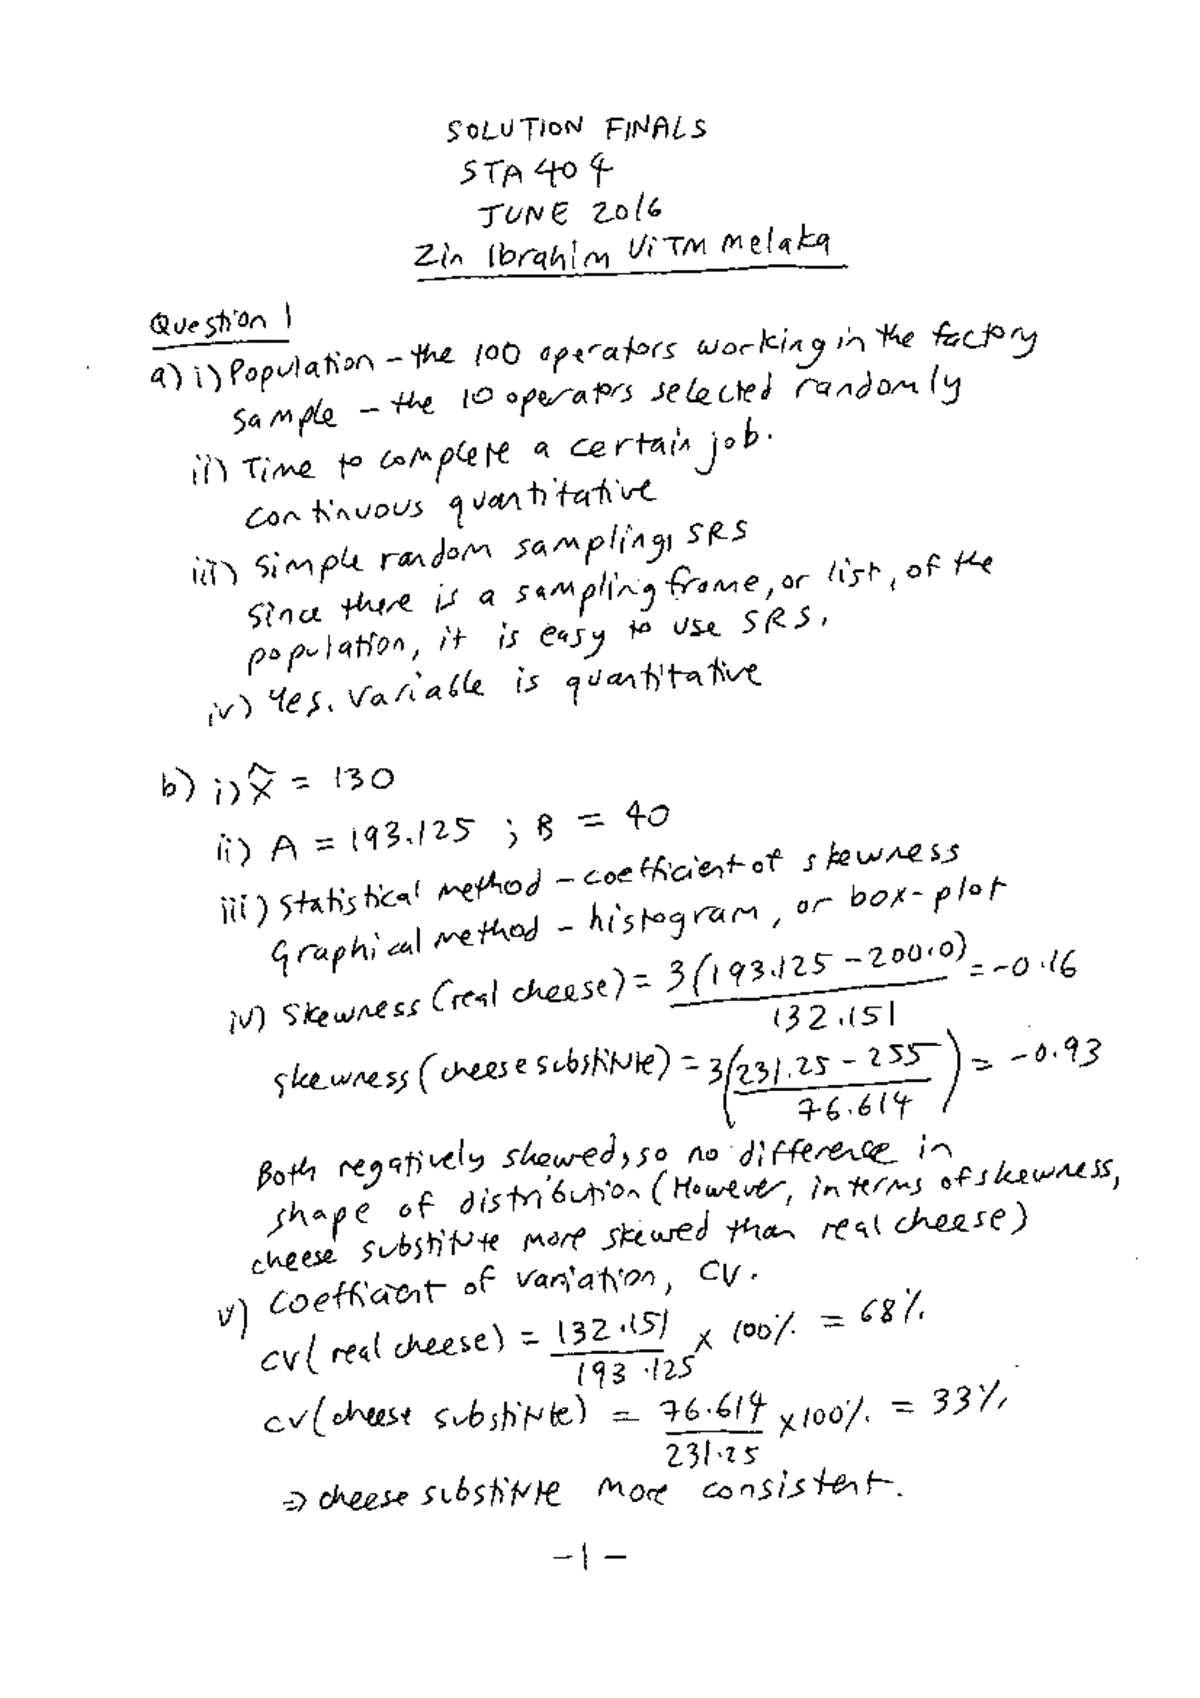 SOLUTION FINALS
STA 404
JUNE 2016
Zin Ibrahim UiTM Melaka
Question 1
a) i) Population - the 100 operators working in the factory
sample - the 10 operators selected randomly
ii) Time to complete a certain job.
continuous quantitative
iii) Simple random sampling, SRS
Since there is a sampling frame, or list, of the
population, it is easy to use SRS.
iv) Yes. Variable is quantitative
b) i) x̂ = 130
ii) A = 193.125 ; B = 40
iii) Statistical method - coefficient of skewness
Graphical method - histogram, or box-plot
iv) Skewness (real cheese) = 3(193.125 - 200.0) / 132.151 = -0.16
skewness (cheese substitute) = 3(231.25 - 255 / 76.614) = -0.93
Both negatively skewed, so no difference in
shape of distribution (However, in terms of skewness,
cheese substitute more skewed than real cheese)
v) Coefficient of variation, CV.
CV( real cheese) = 132.151 / 193.125 x 100% = 68%
CV( cheese substitute) = 76.614 / 231.25 x 100% = 33%
⇒ cheese substitute more consistent.
-1-